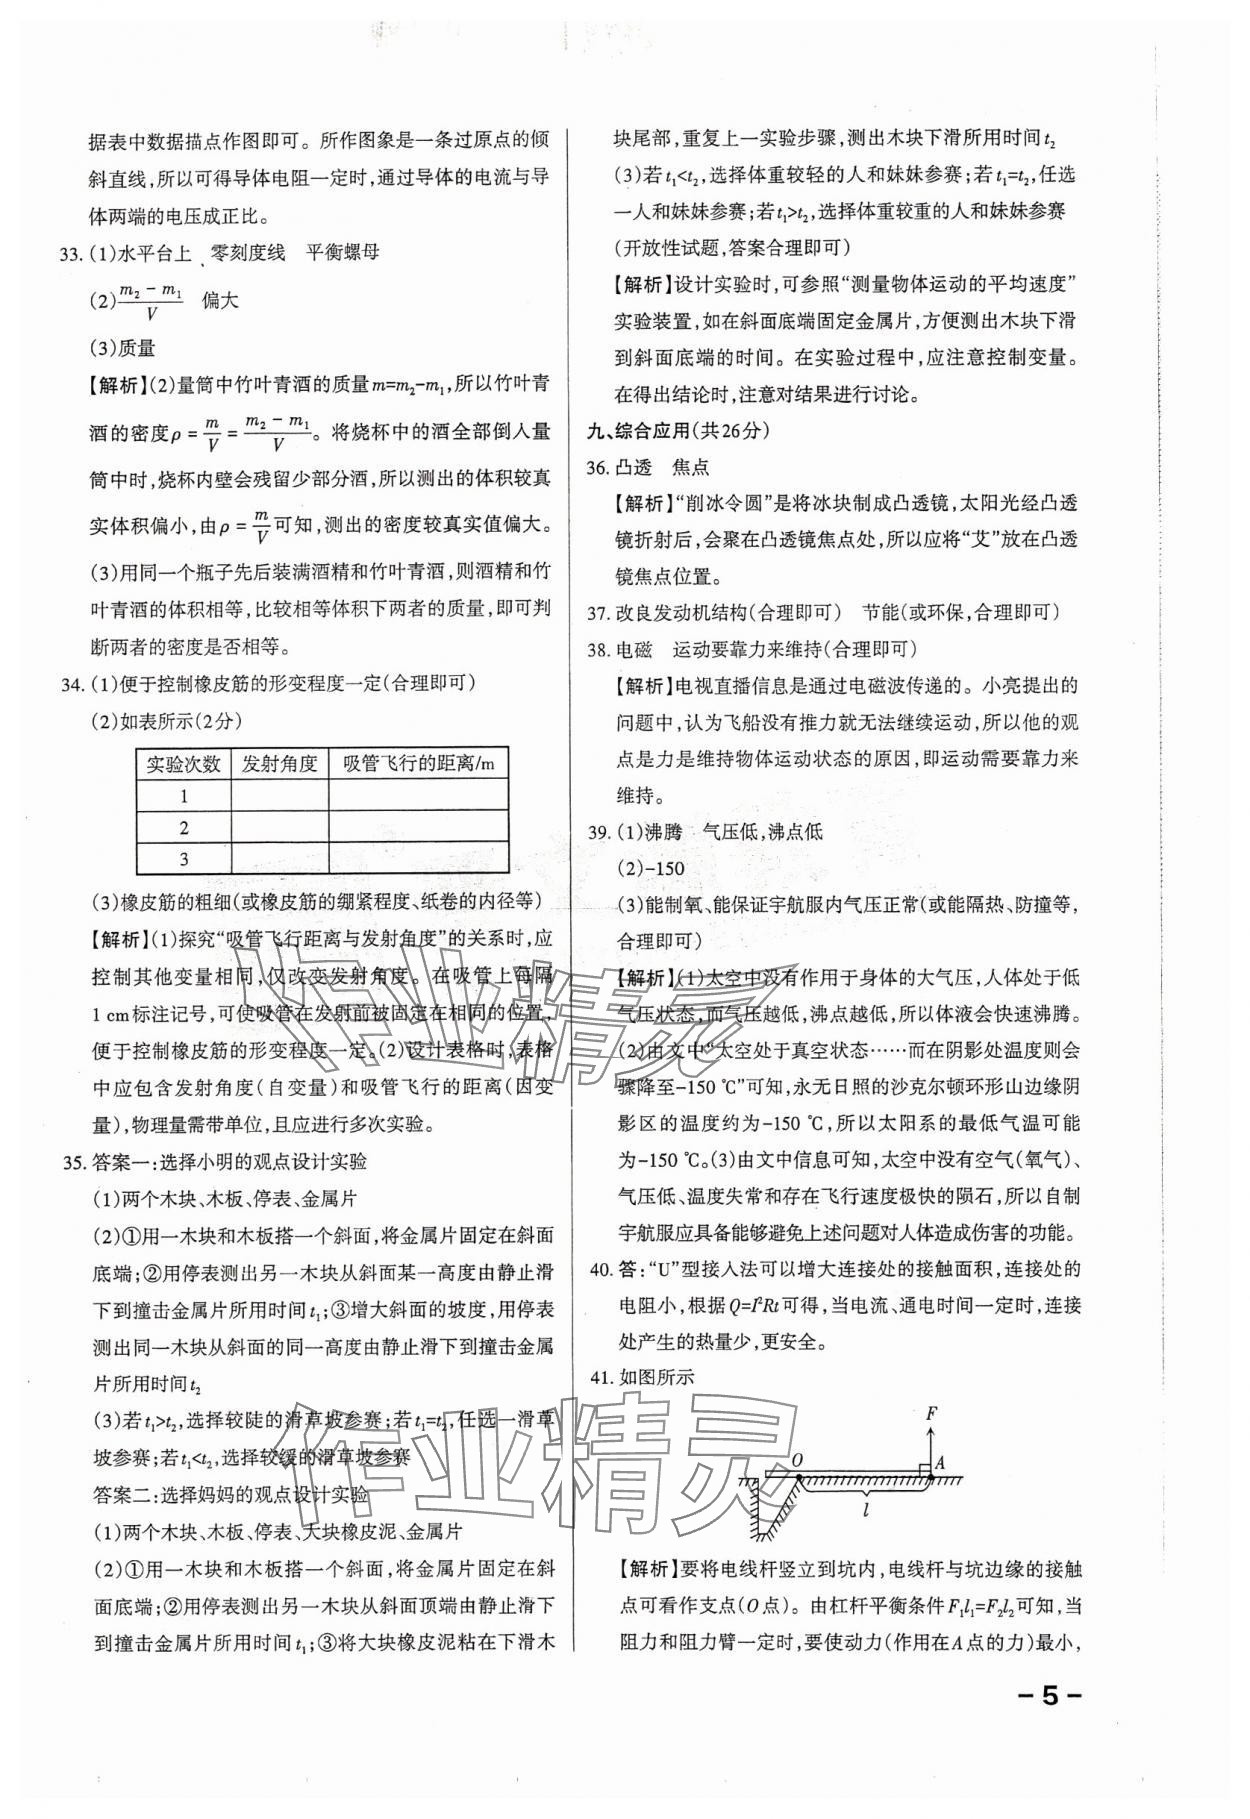 据表中数据描点作图即可。所作图象是一条过原点的倾
斜直线,所以可得导体电阻一定时,通过导体的电流与导
体两端的电压成正比。
33. (1)水平台上 零刻度线 平衡螺母
(2)(m₂ − m₁)/V 偏大
(3)质量
【解析】(2)量筒中竹叶青酒的质量m=m₂-m₁,所以竹叶青
酒的密度ρ = m/V = (m₂ − m₁)/V。将烧杯中的酒全部倒人量
筒中时,烧杯内壁会残留少部分酒,所以测出的体积较真
实体积偏小,由ρ = m/V可知,测出的密度较真实值偏大。
(3)用同一个瓶子先后装满酒精和竹叶青酒,则酒精和竹
叶青酒的体积相等,比较相等体积下两者的质量,即可判
断两者的密度是否相等。
34. (1)便于控制橡皮筋的形变程度一定(合理即可)
(2)如表所示(2分)
实验次数 发射角度 吸管飞行的距离/m
1
2
3
(3)橡皮筋的粗细(或橡皮筋的绷紧程度、纸卷的内径等)
【解析】(1)探究“吸管飞行距离与发射角度”的关系时,应
控制其他变量相同,仅改变发射角度。在吸管上每隔
1 cm标注记号,可使吸管在发射前被固定在相同的位置,
便于控制橡皮筋的形变程度一定。(2)设计表格时,表格
中应包含发射角度(自变量)和吸管飞行的距离(因变
量),物理量需带单位,且应进行多次实验。
35. 答案一:选择小明的观点设计实验
(1)两个木块、木板、停表、金属片
(2)①用一木块和木板搭一个斜面,将金属片固定在斜面
底端;②用停表测出另一木块从斜面某一高度由静止滑
下到撞击金属片所用时间t₁;③增大斜面的坡度,用停表
测出同一木块从斜面的同一高度由静止滑下到撞击金属
片所用时间t₂
(3)若t₁>t₂,选择较陡的滑草坡参赛;若t₁=t₂,任选一滑草
坡参赛;若t₁<t₂,选择较缓的滑草坡参赛
答案二:选择妈妈的观点设计实验
(1)两个木块、木板、停表、大块橡皮泥、金属片
(2)①用一木块和木板搭一个斜面,将金属片固定在斜
面底端;②用停表测出另一木块从斜面顶端由静止滑下
到撞击金属片所用时间t₁;③将大块橡皮泥粘在下滑木
块尾部,重复上一实验步骤,测出木块下滑所用时间t₂
(3)若t₁<t₂,选择体重较轻的人和妹妹参赛;若t₁=t₂,任选
一人和妹妹参赛;若t₁>t₂,选择体重较重的人和妹妹参赛
(开放性试题,答案合理即可)
【解析】设计实验时,可参照“测量物体运动的平均速度”
实验装置,如在斜面底端固定金属片,方便测出木块下滑
到斜面底端的时间。在实验过程中,应注意控制变量。
在得出结论时,注意对结果进行讨论。
九、综合应用(共26分)
36. 凸透 焦点
【解析】“削冰令圆”是将冰块制成凸透镜,太阳光经凸透
镜折射后,会聚在凸透镜焦点处,所以应将“艾”放在凸透
镜焦点位置。
37. 改良发动机结构(合理即可) 节能(或环保,合理即可)
38. 电磁 运动要靠力来维持(合理即可)
【解析】电视直播信息是通过电磁波传递的。小亮提出的
问题中,认为飞船没有推力就无法继续运动,所以他的观
点是力是维持物体运动状态的原因,即运动需要靠力来
维持。
39. (1)沸腾 气压低,沸点低
(2)-150
(3)能制氧、能保证宇航服内气压正常(或能隔热、防撞等,
合理即可)
【解析】(1)太空中没有作用于身体的大气压,人体处于低
气压状态,而气压越低,沸点越低,所以体液会快速沸腾。
(2)由文中“太空处于真空状态……而在阴影处温度则会
骤降至-150 ℃”可知,永无日照的沙克尔顿环形山边缘阴
影区的温度约为-150 ℃,所以太阳系的最低气温可能
为-150 ℃。(3)由文中信息可知,太空中没有空气(氧气)、
气压低、温度失常和存在飞行速度极快的陨石,所以自制
宇航服应具备能够避免上述问题对人体造成伤害的功能。
40. 答:“U”型接入法可以增大连接处的接触面积,连接处的
电阻小,根据Q=I²Rt可得,当电流、通电时间一定时,连接
处产生的热量少,更安全。
41. 如图所示
F
O
A
l
【解析】要将电线杆竖立到坑内,电线杆与坑边缘的接触
点可看作支点(O点)。由杠杆平衡条件F₁l₁=F₂l₂可知,当
阻力和阻力臂一定时,要使动力(作用在A点的力)最小,
– 5 –
作业精灵
作业精灵